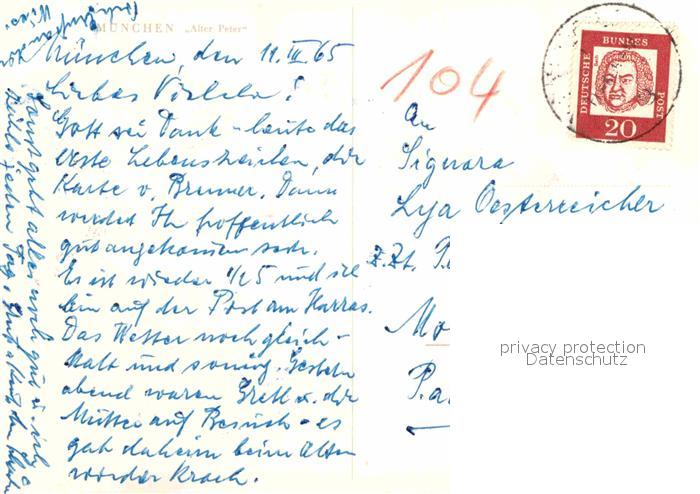 MÜNCHEN „Alter Peter"
München, den 11. III 65
Liebes !
Gott sei Dank - heute das
erste Lebenszeichen, die
Karte v. Brenner. Dann
werdet Ihr hoffentlich
gut angekommen sein.
Es ist wieder 1/2 5 und ich
bin auf der Post am Harras.
Das Wetter noch gleich -
kalt und sonnig. Gestern
abend waren Gretl u. die
Mutter auf Besuch - es
gab daheim beim Alten
wieder Krach.
Sonst geht alles noch gut u. ich
jeden Tag
104
DEUTSCHE BUNDESPOST
20
An
Signora
Lya Oesterreicher
z. Zt. P.
Mo
P.a.
privacy protection
Datenschutz